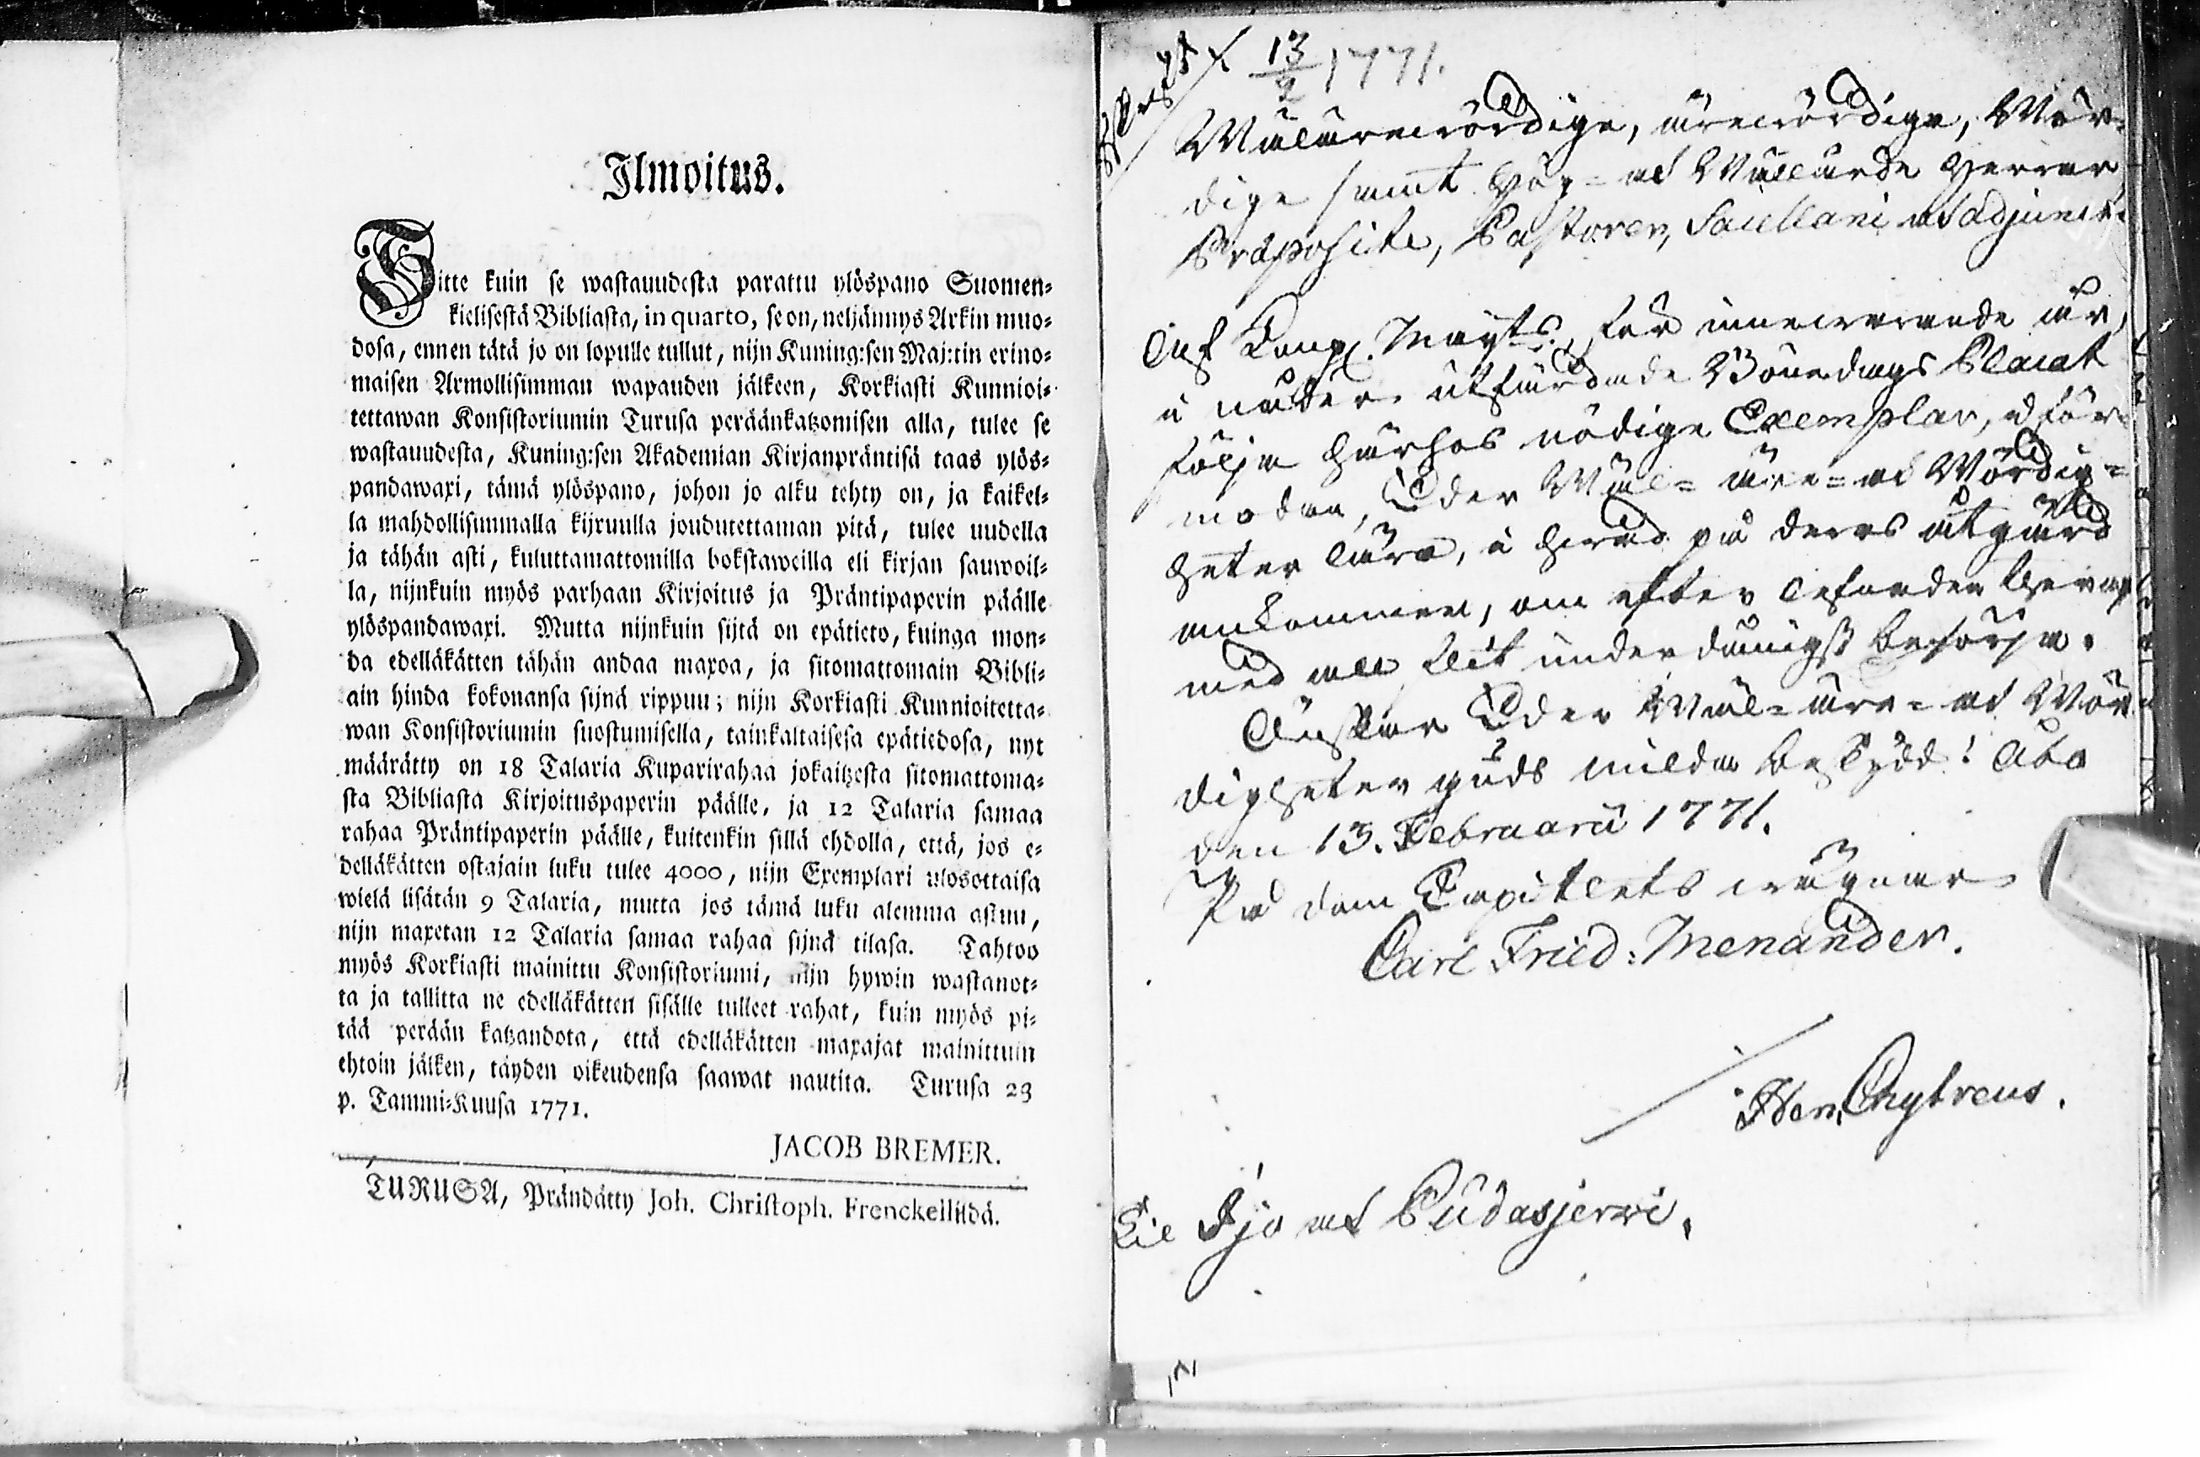 Ilmoitus.
Sitte kuin se wastauudesta parattu ylöspano Suomen-
kielisestä Bibliasta, in quarto, se on, neljännys Arkin muo-
dosa, ennen tätä jo on lopulle tullut, nijn Kuning:sen Maj:tin erino-
maisen Armollisimman wapauden jälkeen, Korkiasti Kunnioi-
tettawan Konsistoriumin Turusa peräänkatzomisen alla, tulee se
wastauudesta, Kuning:sen Akademian Kirjanpräntisä taas ylös-
pandawaxi, tämä ylöspano, johon jo alku tehty on, ja kaikel-
la mahdollisimmalla kijruulla joudutettaman pitä, tulee uudella
ja tähän asti, kuluttamattomilla bokstaweilla eli kirjan sauwoil-
la, nijnkuin myös parhaan Kirjoitus ja Präntipaperin päälle
ylöspandawaxi. Mutta nijnkuin sijtä on epätieto, kuinga mon-
da edelläkätten tähän andaa maxoa, ja sitomattomain Bibli-
ain hinda kokonansa sijnä rippuu; nijn Korkiasti Kunnioitetta-
wan Konsistoriumin suostumisella, tainkaltaisesa epätiedosa, nyt
määrätty on 18 Talaria Kuparirahaa jokaitzesta sitomattoma-
sta Bibliasta Kirjoituspaperin päälle, ja 12 Talaria samaa
rahaa Präntipaperin päälle, kuitenkin sillä ehdolla, että, jos e-
delläkätten ostajain luku tulee 4000, nijn Exemplari ulosottaisa
wielä lisätän 9 Talaria, mutta jos tämä luku alemma astuu,
nijn maxetan 12 Talaria samaa rahaa sijnä tilasa. Tahtoo
myös Korkiasti mainittu Konsistoriumi, nijn hywin wastanot-
ta ja tallitta ne edelläkätten sisälle tulleet rahat, kuin myös pi-
tää perään katzandota, että edelläkätten maxajat mainittuin
ehtoin jälken, täyden oikeudensa saawat nautita. Turusa 23
p. Tammi-Kuusa 1771.
JACOB BREMER.
TURUSA, Prändätty Joh. Christoph. Frenckellildä.
13/2 1771.
Wälärewördige, ärewördige, Wör-
dige samt Hög- och Wällärde Herrar
Præposite, Pastorer, Sacellani och Adjuncter
Af Kongl. Maytz. för innewarande år,
i nåder utfärdade Bönedags Placat
följa härhos nödige Exemplar, i för-
modan, Eder Wäl- äre- och Wördig-
heter lära, i hwad på deras åtgärd
ankommer, om efter lefnaden theraf
med all flit underdånigst besörja.
Önskar Eder Wäl- äre- och Wör-
digheter Guds milda beskydd! Åbo
den 13. Februarii 1771.
På Dom Capitlets wägnar
Carl Fried: Menander.
Hen. Chytreus.
Til Ijo och Pudasjerwi.